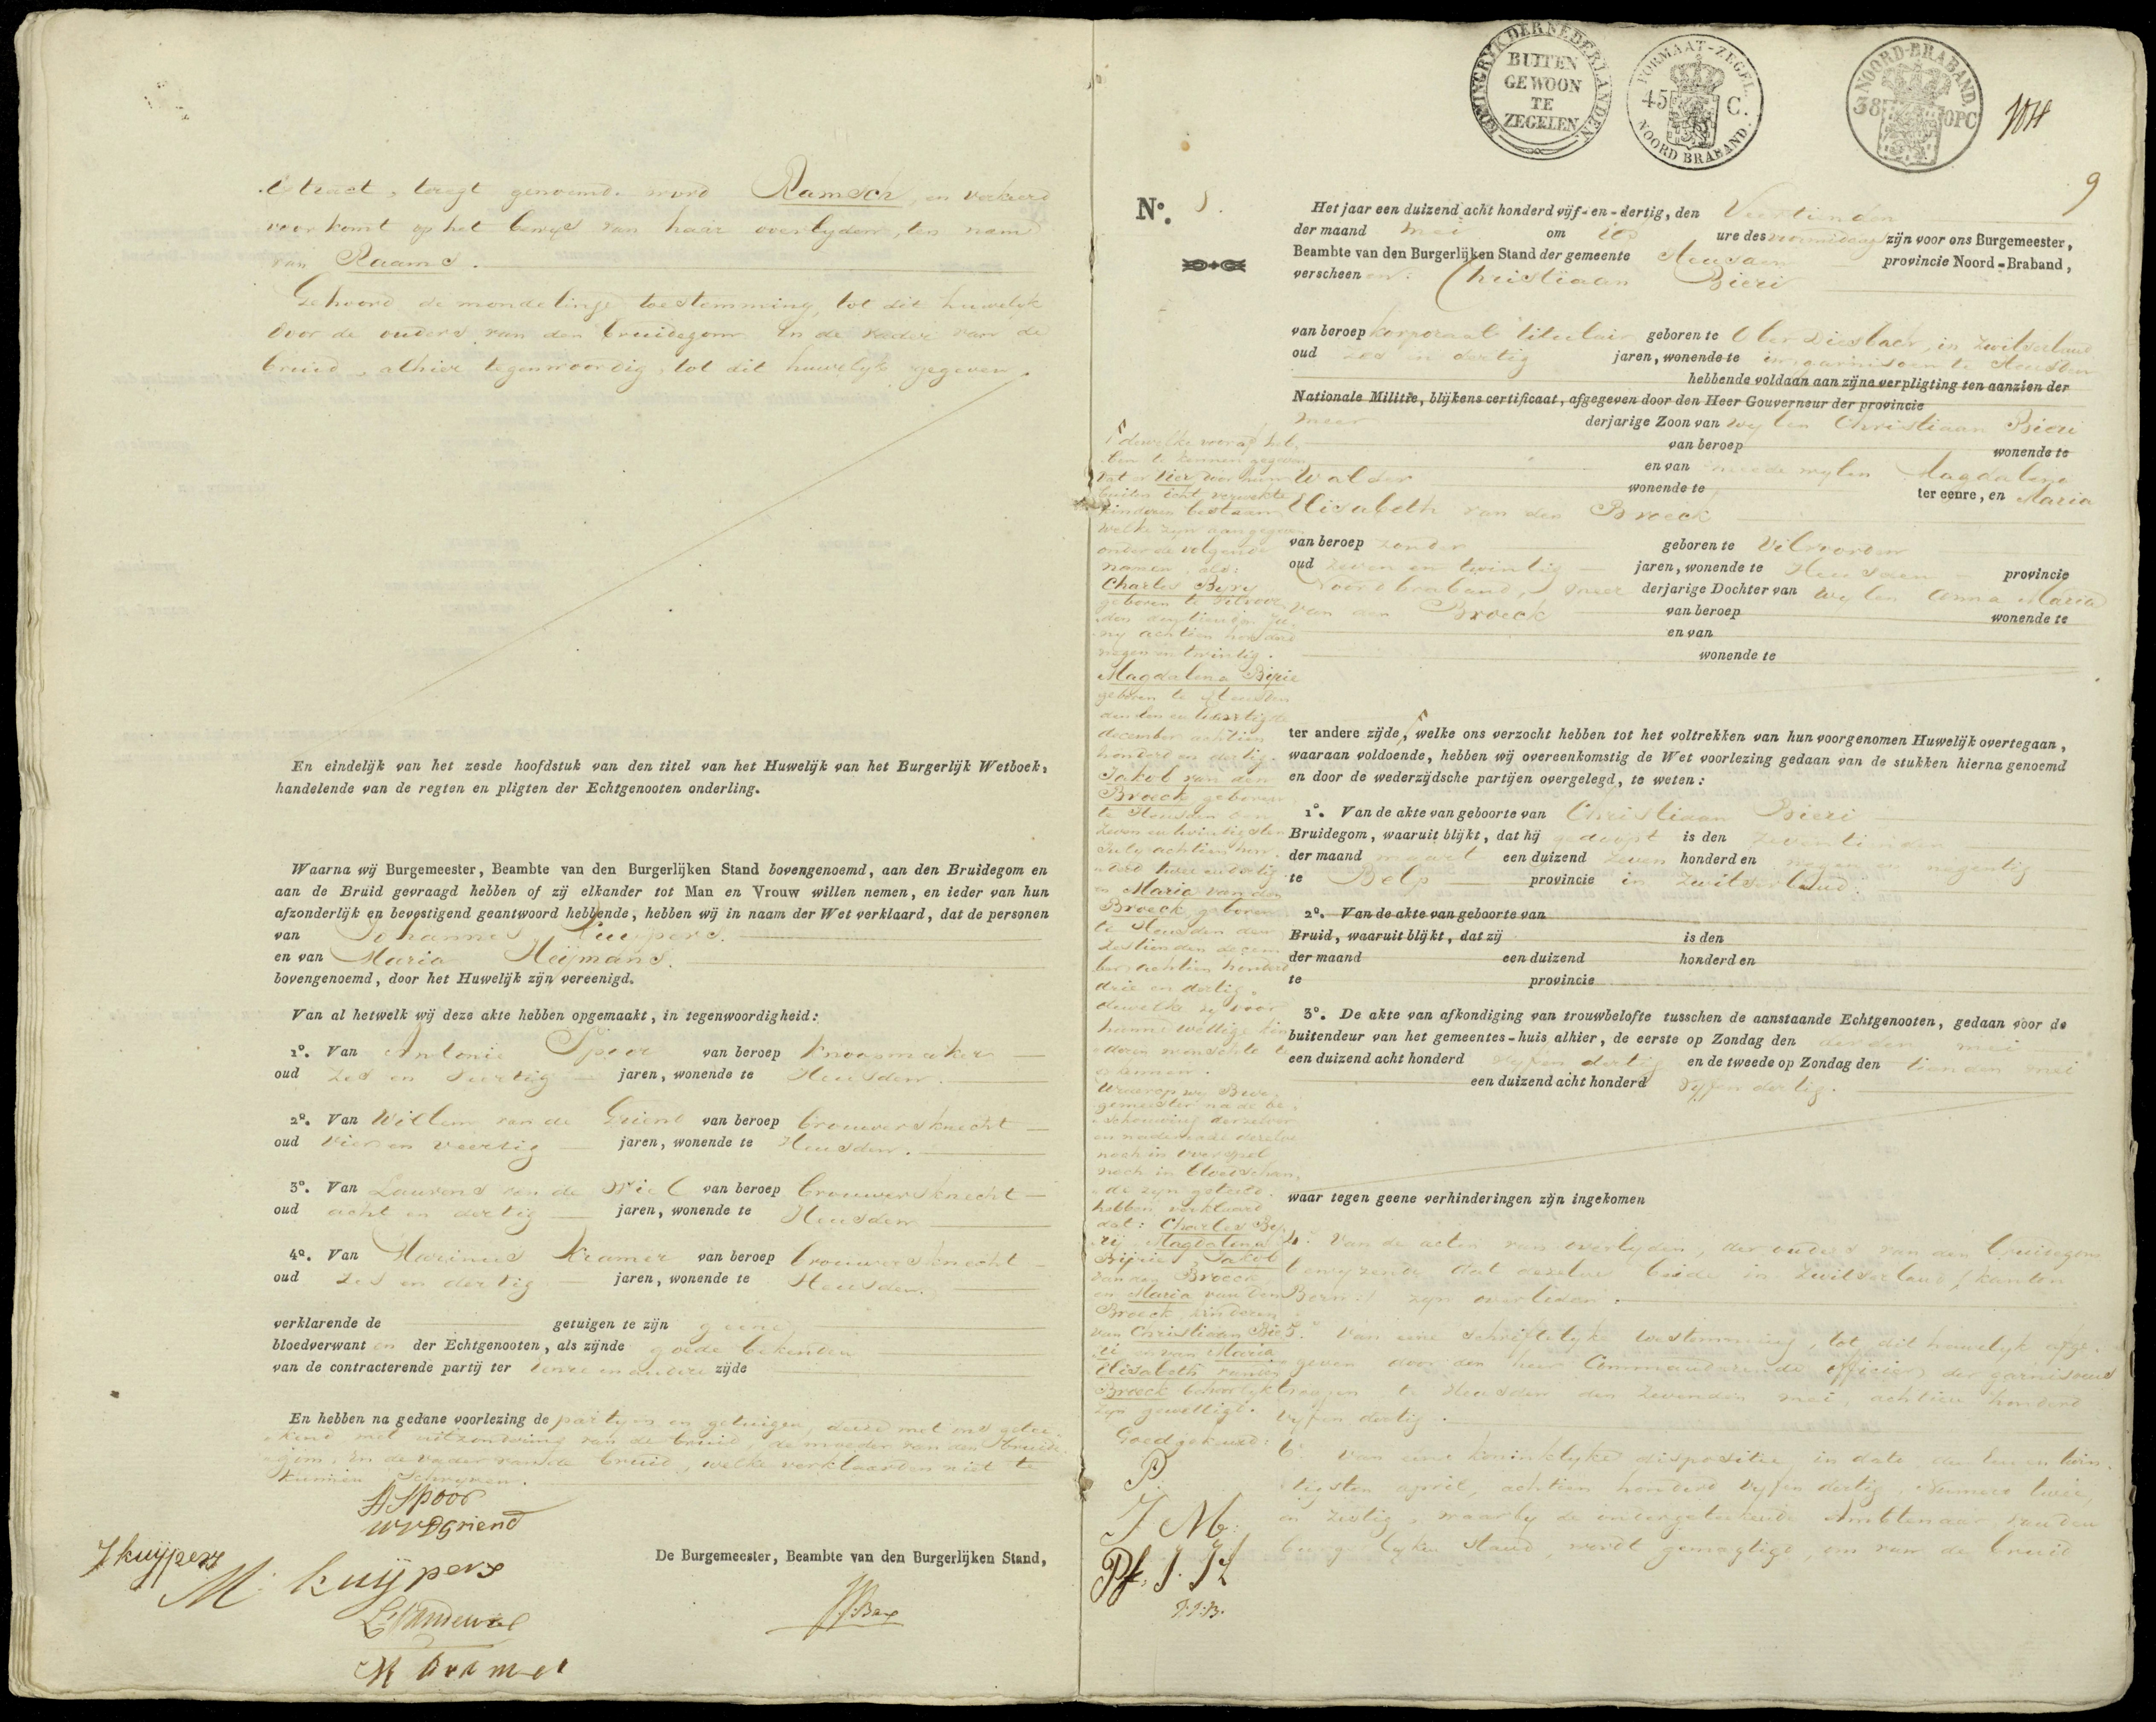 tract, laegt genoemd word Ramsch, en verkeerd
voorkomt op het bewys van haar overlyden, ten name
van Raams.
Gehoord de mondelinge toestemming, tot dit huwelyk
door de ouders van den bruidegom en de vader van de
bruid, alhier tegenwoordig, tot dit huwelyk gegeven.
En eindelijk van het zesde hoofdstuk van den titel van het Huwelijk van het Burgerlijk Wetboek,
handelende van de regten en pligten der Echtgenooten onderling.
Waarna wij Burgemeester, Beambte van den Burgerlijken Stand bovengenoemd, aan den Bruidegom en
aan de Bruid gevraagd hebben of zij elkander tot Man en Vrouw willen nemen, en ieder van hun
afzonderlijk en bevestigend geantwoord hebbende, hebben wij in naam der Wet verklaard, dat de personen
van Johannes Kuijpers.
en van Maria Heijmans.
bovengenoemd, door het Huwelijk zijn vereenigd.
Van al hetwelk wij deze akte hebben opgemaakt, in tegenwoordigheid:
1º. Van Antonie Spoor van beroep knoopmaker
oud zes en veertig jaren, wonende te Heusden.
2º. Van Willem van de Griend van beroep brouwersknecht
oud vier en veertig jaren, wonende te Heusden.
3º. Van Laurens van de Wiel van beroep brouwersknecht
oud acht en dertig jaren, wonende te Heusden
4º. Van Marinus Kramer van beroep brouwersknecht
oud zes en dertig jaren, wonende te Heusden.
verklarende de getuigen te zijn geene
bloedverwanten der Echtgenooten, als zijnde goede bekenden
van de contracterende partij ter eenre en andere zijde
En hebben na gedane voorlezing de partyen en getuigen, deeze met ons getee-
kend met uitzondering van de bruid, de moeder van den bruide-
gom, en de vader van de bruid, welke verklaarden niet te
kunnen schryven.
A Spoor
W V D Griend
J kuijpers
M: kuijpers
De Burgemeester, Beambte van den Burgerlijken Stand,
L Vandewiel
J.J. Bax
M Kramer
KONINGRYK DER NEDERLANDEN
BUITEN
GEWOON
TE
ZEGELEN
FORMAAT-ZEGEL
45 C.
NOORD BRABAND.
NOORD-BRABAND.
38 OPC
9
Nº. 8.
Het jaar een duizend acht honderd vijf-en-dertig, den Veertienden
der maand Mei om tien ure des voormiddags zijn voor ons Burgemeester,
Beambte van den Burgerlijken Stand der gemeente Heusden provincie Noord-Braband,
verscheenen: Christiaan Bieri
van beroep korporaal titulair geboren te Ober Diesbach, in Zwitserland
oud zes en dertig jaren, wonende te in garnisoen te Heusden
hebbende voldaan aan zijne verpligting ten aanzien der
Nationale Militie, blijkens certificaat, afgegeven door den Heer Gouverneur der provincie
meer derjarige Zoon van wylen Christiaan Bieri
van beroep wonende te
en van mede wylen Magdalena
Walder wonende te ter eenre, en Maria
Elisabeth van den Broeck
van beroep zonder geboren te Vilvoorden
oud zeven en twintig jaren, wonende te Heusden provincie
Noord braband, meer derjarige Dochter van wylen Anna Maria
van den Broeck van beroep wonende te
en van
wonende te
ter andere zijde, welke ons verzocht hebben tot het voltrekken van hun voorgenomen Huwelijk overtegaan,
waaraan voldoende, hebben wij overeenkomstig de Wet voorlezing gedaan van de stukken hierna genoemd
en door de wederzijdsche partijen overgelegd, te weten:
1º. Van de akte van geboorte van Christiaan Bieri
Bruidegom, waaruit blijkt, dat hij gedoopt is den zeventienden
der maand maart een duizend zeven honderd en negen en negentig
te Belp provincie in Zwitserland.
2º. Van de akte van geboorte van
Bruid, waaruit blijkt, dat zij is den
der maand een duizend honderd en
te provincie
3º. De akte van afkondiging van trouwbelofte tusschen de aanstaande Echtgenooten, gedaan voor de
buitendeur van het gemeentes-huis alhier, de eerste op Zondag den derden mei
een duizend acht honderd vyf en dertig en de tweede op Zondag den tienden mei
een duizend acht honderd vyf en dertig.
waar tegen geene verhinderingen zijn ingekomen
4. Van de acten van overlyden, der ouders van den bruidegom
bewyzende dat dezelve beide in Zwitserland (kanton
Bern) zyn overleden.
5. Van eene schriftelyke toestemming, tot dit huwelyk afge-
geven door den heer Commanderende officier der garnisoens
troepen te Heusden den zevenden mei, achtien honderd
vyf en dertig.
6. Van eene koninklyke dispositie, in dato den een en twin-
tigsten april, achtien honderd vyf en dertig, Nummero twee
en zestig, waarby de ondergeteekende Ambtenaar van den
burgerlyken stand, wordt gemagtigd om van de bruid
dewelke vooraf heb-
ben te kennen gegeven
dat er vier door hun
buiten echt verwekte
kinderen bestaan
welke zyn aangegeven
onder de volgende
namen, als:
Charles Byry
geboren te Vilvoor-
den den tienden Ju-
ny achtien honderd
negen en twintig.
Magdalena Bijrie
geboren te Heusden
den een en twintigste
december achtien
honderd en dertig.
Jakob van den
Broeck geboren
te Heusden den
zeven en twintigsten
July achtien hon-
derd twee en dertig
en Maria van den
Broeck geboren
te Heusden den
zestienden decem-
ber achtien honderd
drie en dertig.
dewelke zy voor
hunne wettige kin-
deren wenschte te
erkennen.
Waarop wy Bur-
gemeester na de be-
schouwing derzelver
en nademaal dezelve
noch in overspel
noch in bloedschan-
de zyn geteeld
hebben verklaard
dat: Charles By-
rij, Magdalena
Bijrie, Jakob
van den Broeck
en Maria van den
Broeck, kinderen
van Christiaan Bie-
ri en van Maria
Elisabeth van den
Broeck behoorlyk
zyn gewettigd.
Goedgekeurd:
J.J.B.